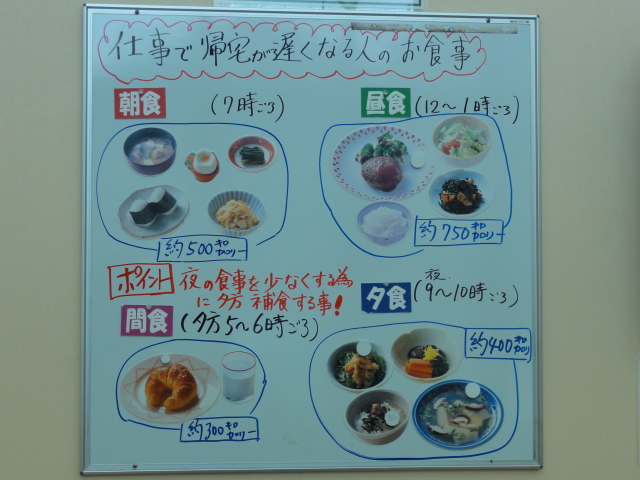 仕事で帰宅が遅くなる人のお食事
朝食 (7時ごろ)
約500キロカロリー
昼食 (12～1時ごろ)
約750キロカロリー
ポイント 夜の食事を少なくする為
に夕方補食する事!
間食 (夕方5～6時ごろ)
約300キロカロリー
夕食 夜(9～10時ごろ)
約400キロカロリー